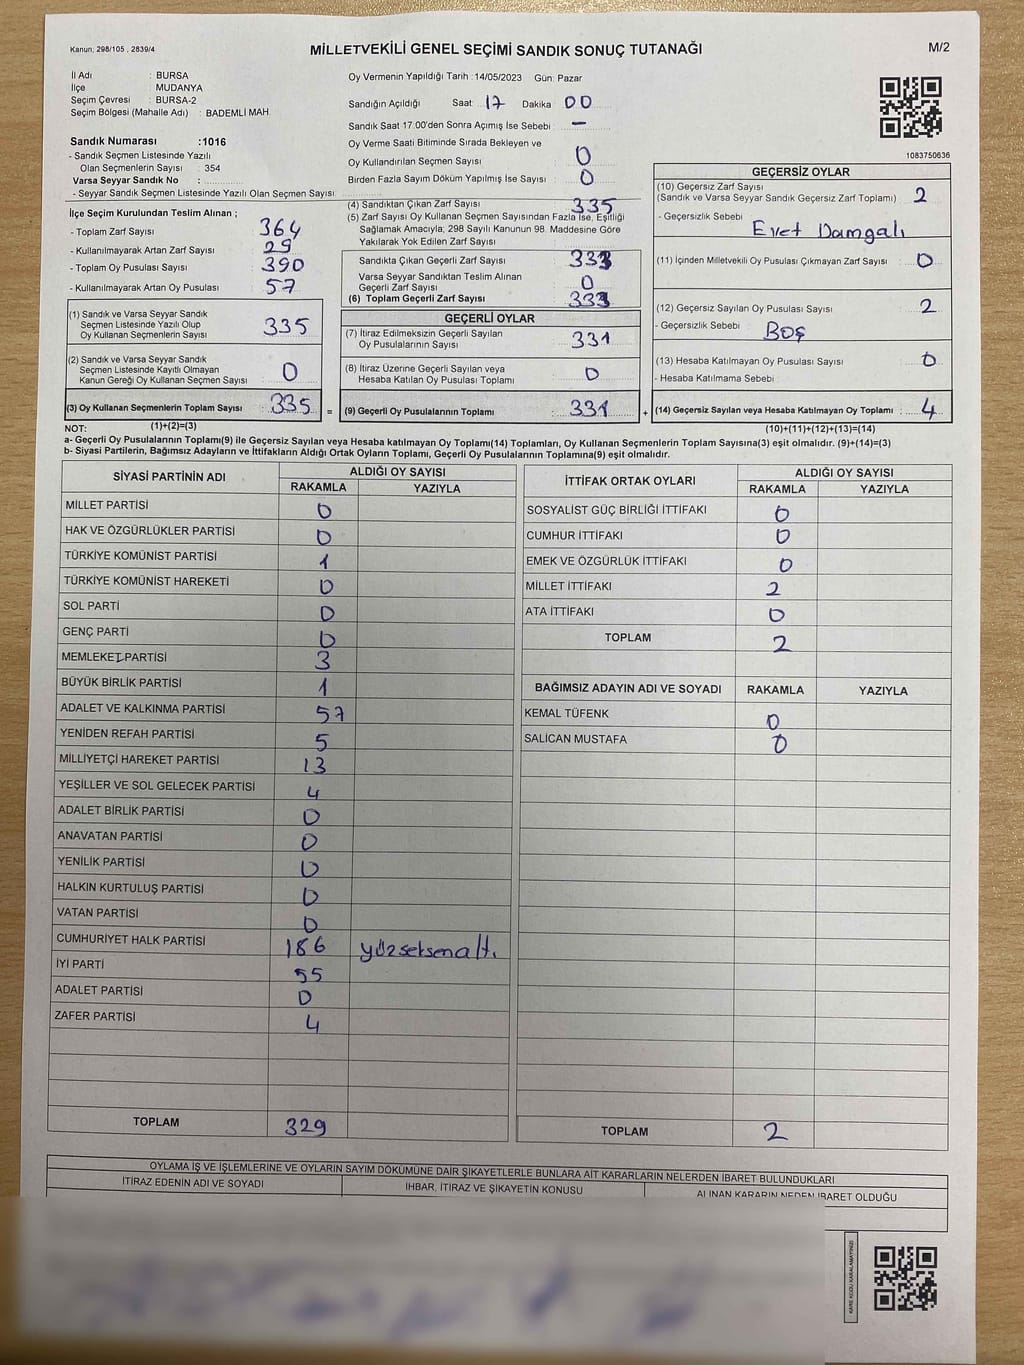 Kanun; 298/105 , 2839/4
MİLLETVEKİLİ GENEL SEÇİMİ SANDIK SONUÇ TUTANAĞI
M/2
İl Adı : BURSA
İlçe : MUDANYA
Seçim Çevresi : BURSA-2
Seçim Bölgesi (Mahalle Adı) : BADEMLİ MAH.
Oy Vermenin Yapıldığı Tarih :14/05/2023 Gün: Pazar
Sandığın Açıldığı Saat: 17 Dakika 00
Sandık Saat 17.00'den Sonra Açımış İse Sebebi : –
Oy Verme Saati Bitiminde Sırada Bekleyen ve
Oy Kullandırılan Seçmen Sayısı : 0
Birden Fazla Sayım Döküm Yapılmış İse Sayısı : 0
1083750636
Sandık Numarası :1016
- Sandık Seçmen Listesinde Yazılı
Olan Seçmenlerin Sayısı : 354
Varsa Seyyar Sandık No :
- Seyyar Sandık Seçmen Listesinde Yazılı Olan Seçmen Sayısı :
İlçe Seçim Kurulundan Teslim Alınan ;
- Toplam Zarf Sayısı : 364
- Kullanılmayarak Artan Zarf Sayısı : 29
- Toplam Oy Pusulası Sayısı : 390
- Kullanılmayarak Artan Oy Pusulası : 57
(1) Sandık ve Varsa Seyyar Sandık
Seçmen Listesinde Yazılı Olup
Oy Kullanan Seçmenlerin Sayısı : 335
(2) Sandık ve Varsa Seyyar Sandık
Seçmen Listesinde Kayıtlı Olmayan
Kanun Gereği Oy Kullanan Seçmen Sayısı : 0
(3) Oy Kullanan Seçmenlerin Toplam Sayısı : 335 =
(1)+(2)=(3)
(4) Sandıktan Çıkan Zarf Sayısı : 335
(5) Zarf Sayısı Oy Kullanan Seçmen Sayısından Fazla İse, Eşitliği
Sağlamak Amacıyla; 298 Sayılı Kanunun 98. Maddesine Göre
Yakılarak Yok Edilen Zarf Sayısı :
Sandıkta Çıkan Geçerli Zarf Sayısı : 333
Varsa Seyyar Sandıktan Teslim Alınan
Geçerli Zarf Sayısı : 0
(6) Toplam Geçerli Zarf Sayısı : 333
GEÇERLİ OYLAR
(7) İtiraz Edilmeksizin Geçerli Sayılan
Oy Pusulalarının Sayısı : 331
(8) İtiraz Üzerine Geçerli Sayılan veya
Hesaba Katılan Oy Pusulası Toplamı : 0
(9) Geçerli Oy Pusulalarının Toplamı : 331 +
GEÇERSİZ OYLAR
(10) Geçersiz Zarf Sayısı
(Sandık ve Varsa Seyyar Sandık Geçersiz Zarf Toplamı) : 2
- Geçersizlik Sebebi
Evet Damgalı
(11) İçinden Milletvekili Oy Pusulası Çıkmayan Zarf Sayısı : 0
(12) Geçersiz Sayılan Oy Pusulası Sayısı : 2
- Geçersizlik Sebebi : Boş
(13) Hesaba Katılmayan Oy Pusulası Sayısı : 0
- Hesaba Katılmama Sebebi
(14) Geçersiz Sayılan veya Hesaba Katılmayan Oy Toplamı : 4
(10)+(11)+(12)+(13)=(14)
NOT:
a- Geçerli Oy Pusulalarının Toplamı(9) ile Geçersiz Sayılan veya Hesaba katılmayan Oy Toplamı(14) Toplamları, Oy Kullanan Seçmenlerin Toplam Sayısına(3) eşit olmalıdır. (9)+(14)=(3)
b- Siyasi Partilerin, Bağımsız Adayların ve İttifakların Aldığı Ortak Oyların Toplamı, Geçerli Oy Pusulalarının Toplamına(9) eşit olmalıdır.
SİYASİ PARTİNİN ADI ALDIĞI OY SAYISI
RAKAMLA YAZIYLA
MİLLET PARTİSİ 0
HAK VE ÖZGÜRLÜKLER PARTİSİ 0
TÜRKİYE KOMÜNİST PARTİSİ 1
TÜRKİYE KOMÜNİST HAREKETİ 0
SOL PARTİ 0
GENÇ PARTİ 0
MEMLEKET PARTİSİ 3
BÜYÜK BİRLİK PARTİSİ 1
ADALET VE KALKINMA PARTİSİ 57
YENİDEN REFAH PARTİSİ 5
MİLLİYETÇİ HAREKET PARTİSİ 13
YEŞİLLER VE SOL GELECEK PARTİSİ 4
ADALET BİRLİK PARTİSİ 0
ANAVATAN PARTİSİ 0
YENİLİK PARTİSİ 0
HALKIN KURTULUŞ PARTİSİ 0
VATAN PARTİSİ 0
CUMHURİYET HALK PARTİSİ 186 yüzseksenaltı
İYİ PARTİ 55
ADALET PARTİSİ 0
ZAFER PARTİSİ 4
TOPLAM 329
İTTİFAK ORTAK OYLARI ALDIĞI OY SAYISI
RAKAMLA YAZIYLA
SOSYALİST GÜÇ BİRLİĞİ İTTİFAKI 0
CUMHUR İTTİFAKI 0
EMEK VE ÖZGÜRLÜK İTTİFAKI 0
MİLLET İTTİFAKI 2
ATA İTTİFAKI 0
TOPLAM 2
BAĞIMSIZ ADAYIN ADI VE SOYADI RAKAMLA YAZIYLA
KEMAL TÜFENK 0
SALİCAN MUSTAFA 0
TOPLAM 2
OYLAMA İŞ VE İŞLEMLERİNE VE OYLARIN SAYIM DÖKÜMÜNE DAİR ŞİKAYETLERLE BUNLARA AİT KARARLARIN NELERDEN İBARET BULUNDUKLARI
İTİRAZ EDENİN ADI VE SOYADI İHBAR, İTİRAZ VE ŞİKAYETİN KONUSU ALINAN KARARIN NEDEN İBARET OLDUĞU
KARE KODU KARALAMAYINIZ!